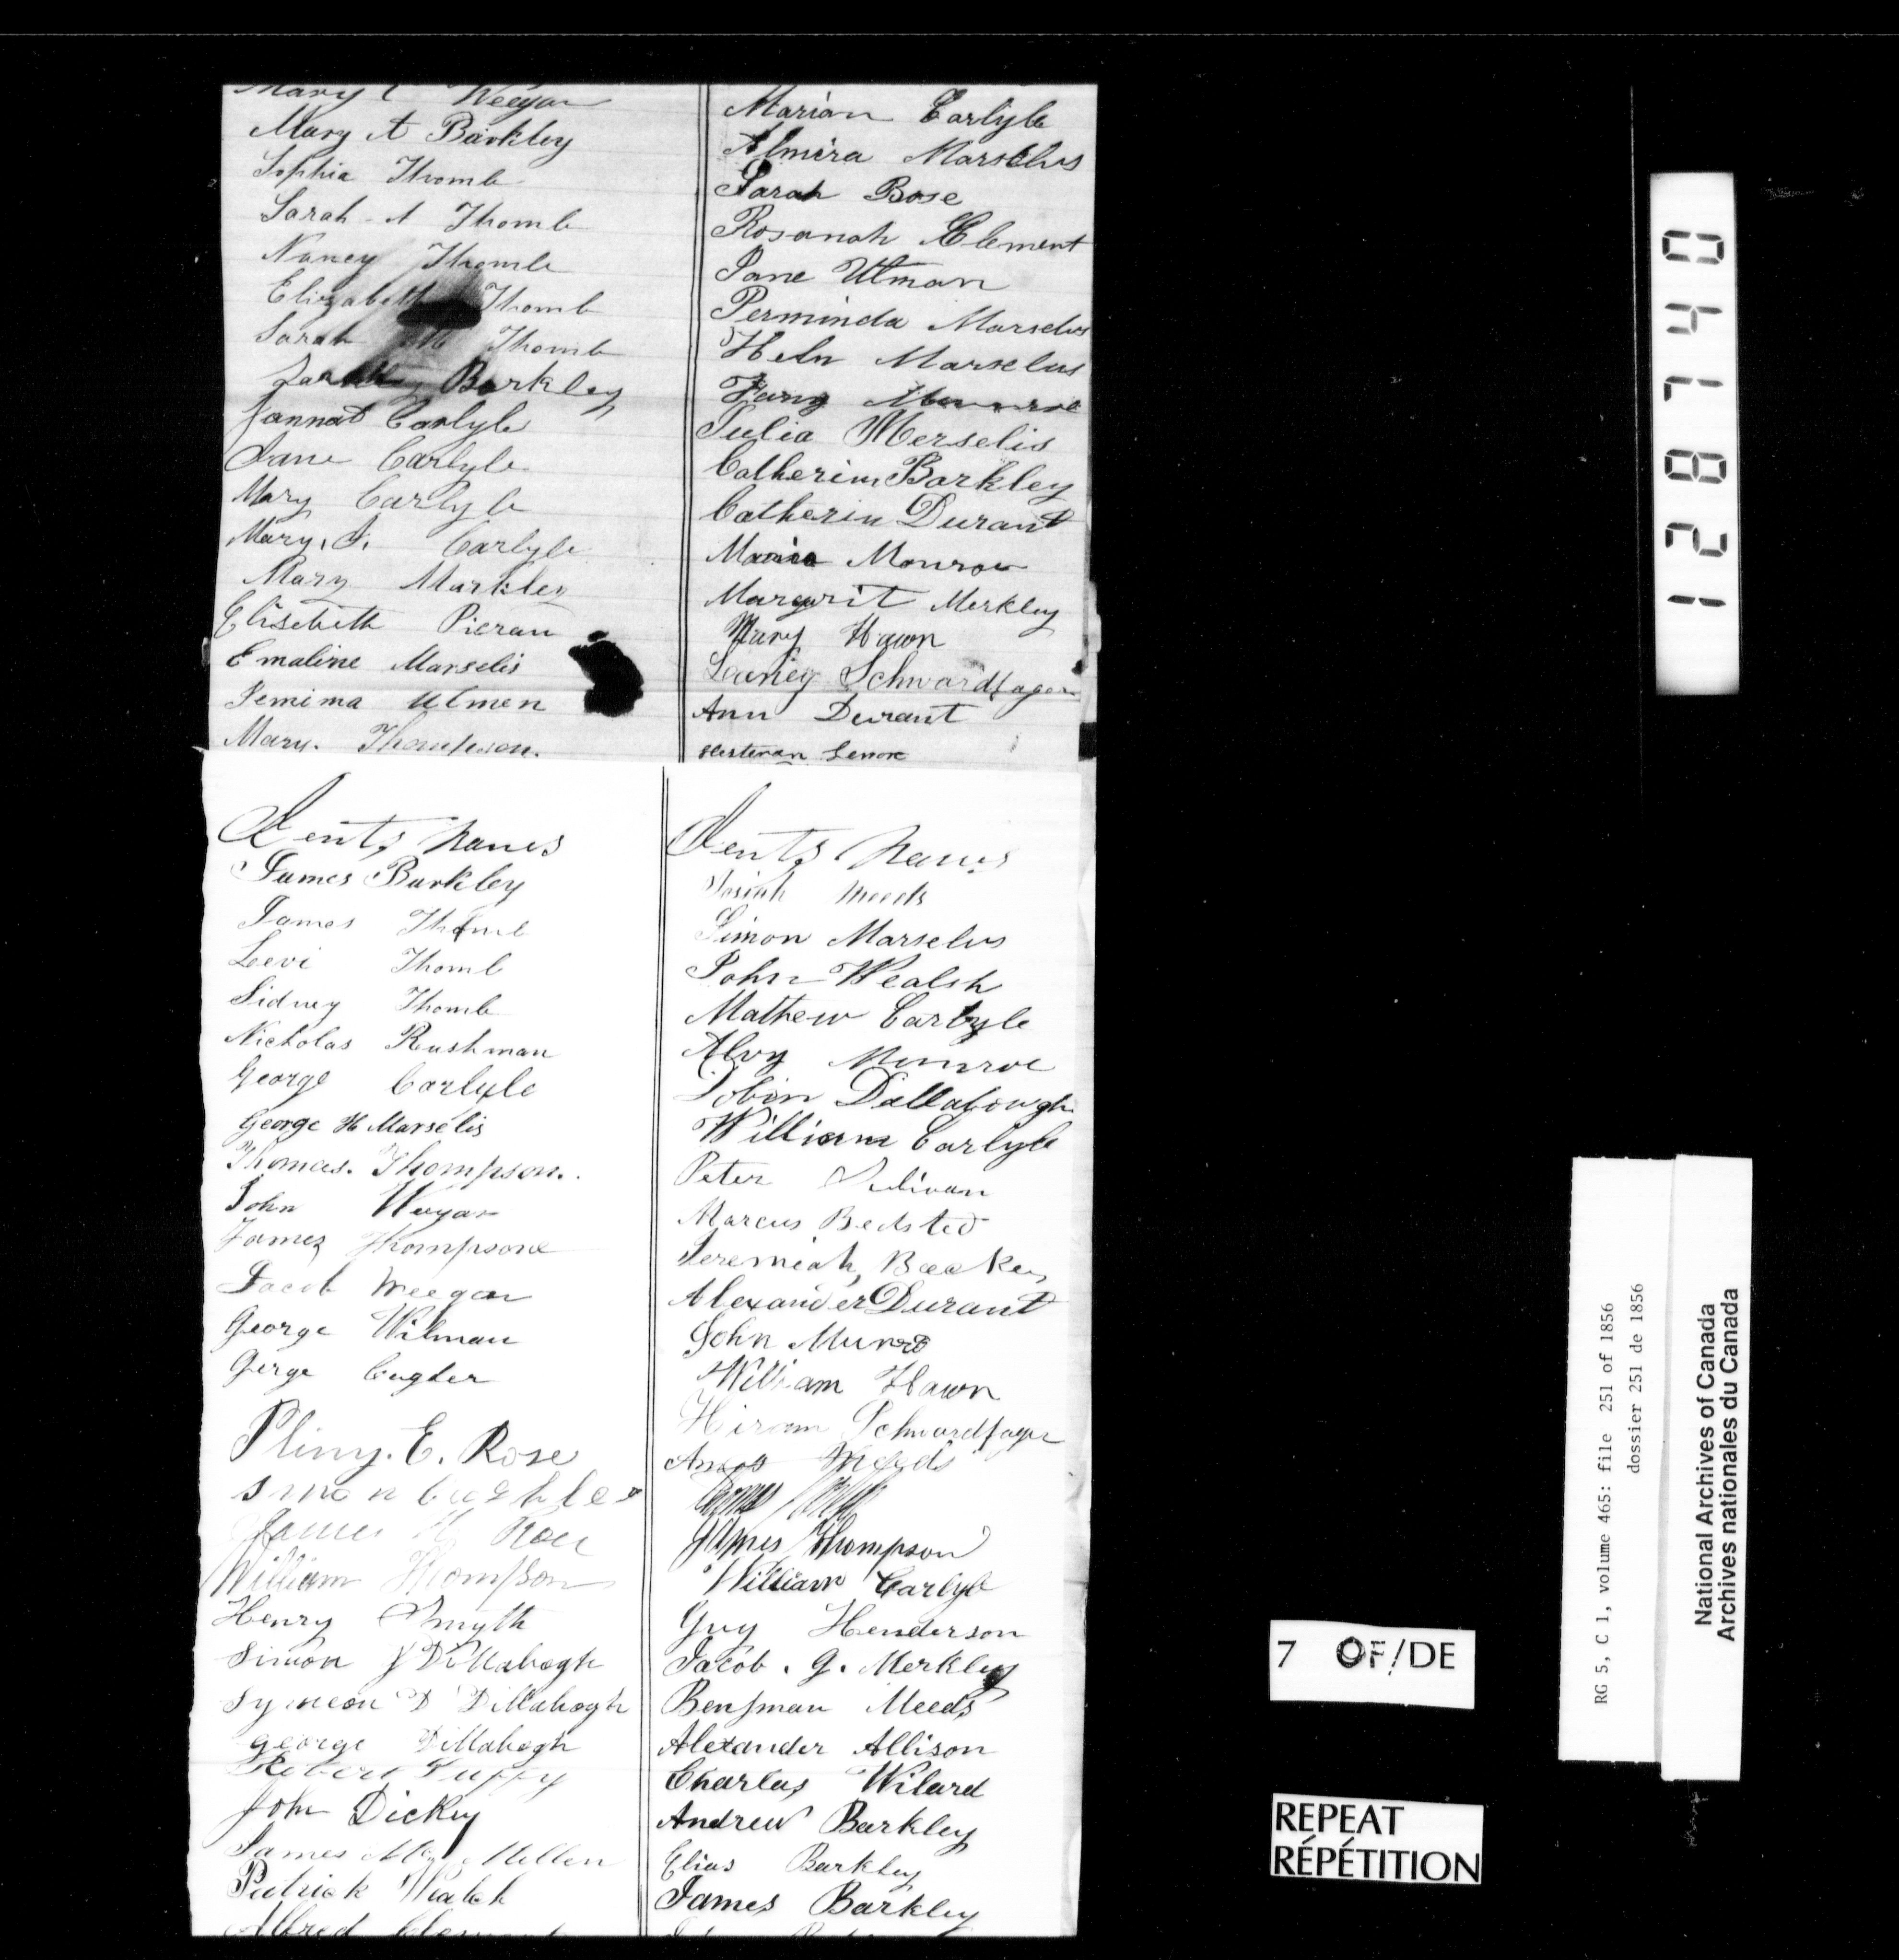 Mary C Weegar
Mary A Barkley
Sophia Thomb
Sarah A Thomb
Nancy Thomb
Elizabeth Thomb
Sarah M Thomb
Barkley
Jannat Carlyle
Jane Carlyle
Mary Carlyle
Mary. J. Carlyle
Mary Markley
Elisebeth Pieran
Emaline Marselis
Jemima Ulmen
Mary. Thompson.
Marian Carlyle
Almira Marselus
Sarah Bose
Rosanah Clement
Jane Ulman
Perminda Marselus
Heln Marselus
Fany Munroe
Julia Merselis
Catherin Barkley
Catherin Durant
Maria Monroe
Margarit Merkley
Mary Hawn
Laney Schwardfager
Ann Durant
Lenox
Gents names
James Barkley
James Thomb
Levi Thomb
Sidney Thomb
Nicholas Rushman
George Carlyle
George H Marselis
Thomas. Thompson.
John Weegar
James Thompson
Jacob Weegar
George Wilman
Gerge Cugler
Pliny. E. Rose
James H Rose
William Thompson
Henry Smyth
Simon J Dillabogh
Symeon D Dillabogh
george Dillabogh
Robert Duffy
John Dickey
James Mc Mellen
Patrick Wealch
Alfred Clement
Gents names
Josiah Meeds
Simon Marselus
John Wealsh
Mathew Carlyle
Alvy Munroe
Tobin Dallabough
William Carlyle
Peter Sulivan
Marcus Bedsted
Jeremiah
Alexander Durant
John Munro
William Hawn
Hiram Schwardfager
Amos Meeds
James Thompson
William Carlyle
Guy Henderson
Jacob. G. Merkley
Benjman Meeds
Alexander Allison
Charlas Wilard
Andrew Barkley
Elias Barkley
James Barkley
128740
RG 5, C 1, volume 465: file 251 of 1856
dossier 251 de 1856
National Archives of Canada
Archives nationales du Canada
7 OF/DE
REPEAT
RÉPÉTITION